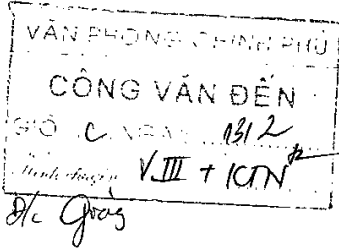 VĂN PHÒNG CHÍNH PHỦ
CÔNG VĂN ĐẾN
GIỜ C NGÀY 13/2
Kính chuyển V.III + KTN
Đ/c